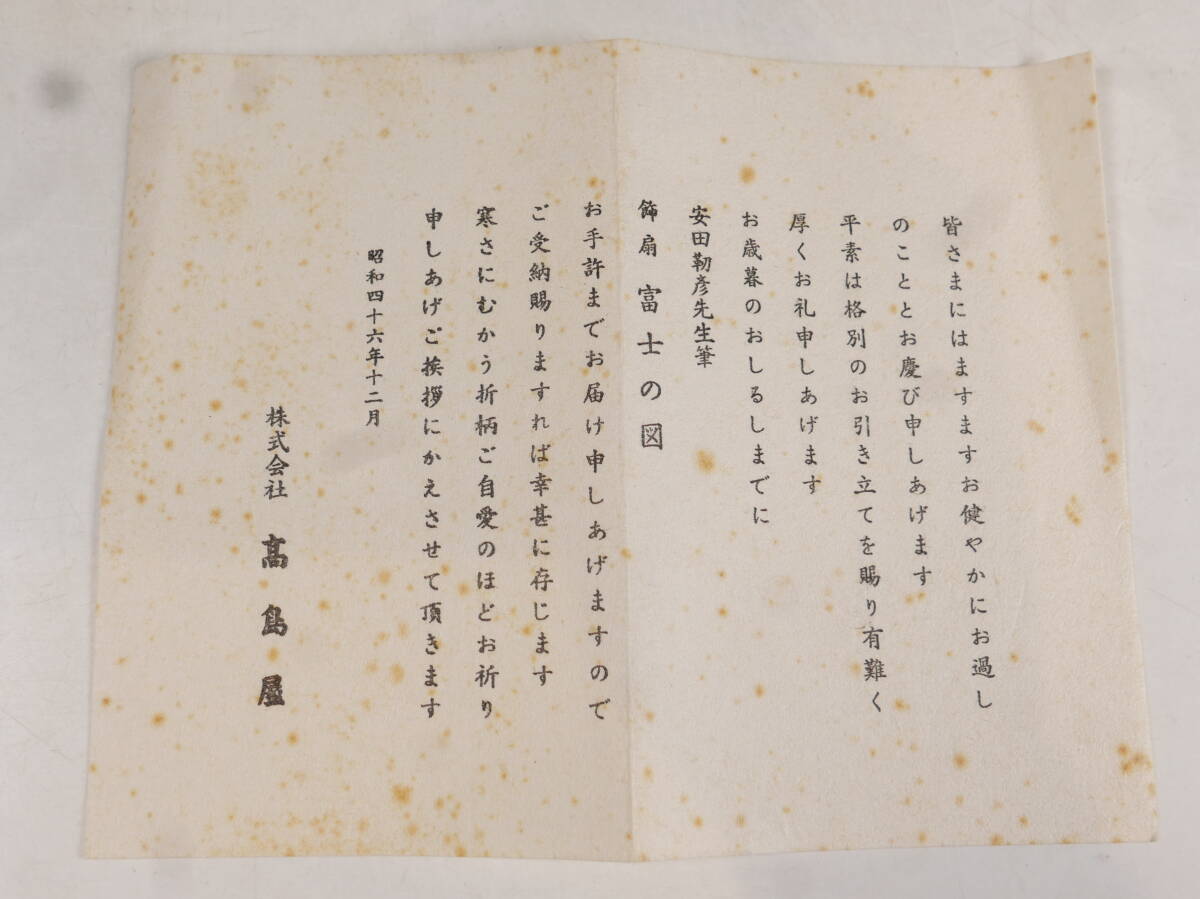 皆さまにはますますお健やかにお過し
のこととお慶び申しあげます
平素は格別のお引き立てを賜り有難く
厚くお礼申しあげます
お歳暮のおしるしまでに
安田靭彦先生筆
飾扇 富士の図
お手許までお届け申しあげますので
ご受納賜りますれば幸甚に存じます
寒さにむかう折柄ご自愛のほどお祈り
申しあげご挨拶にかえさせて頂きます
昭和四十六年十二月
株式会社 髙島屋